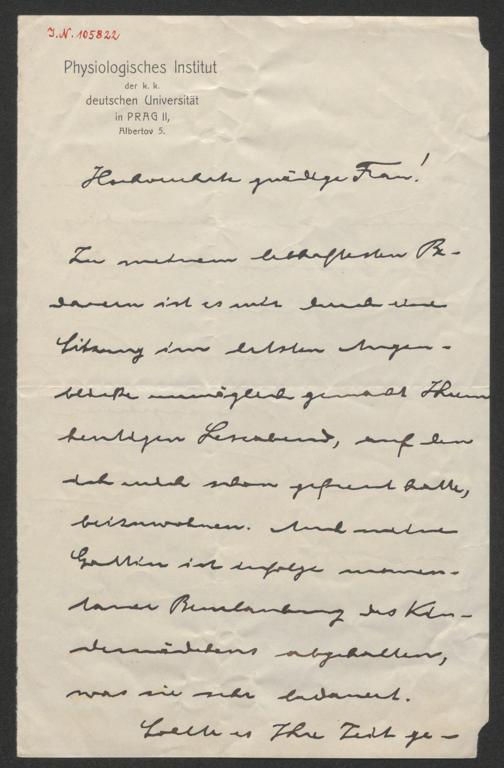 I.N. 105822
Physiologisches Institut
der k. k.
deutschen Universität
in PRAG II,
Albertov 5.
Hochverehrte gnädige Frau!
Zu meinem lebhaftesten Be-
dauern ist es mir durch eine
Sitzung im letzten Augen-
blicke unmöglich gemacht Ihrem
heutigen Leseabend, auf den
ich mich schon gefreut hatte,
beizuwohnen. Auch meine
Gattin ist infolge momen-
taner Beurlaubung des Kin-
dermädchens abgehalten,
was sie sehr bedauert.
Sollte es Ihre Zeit ge-